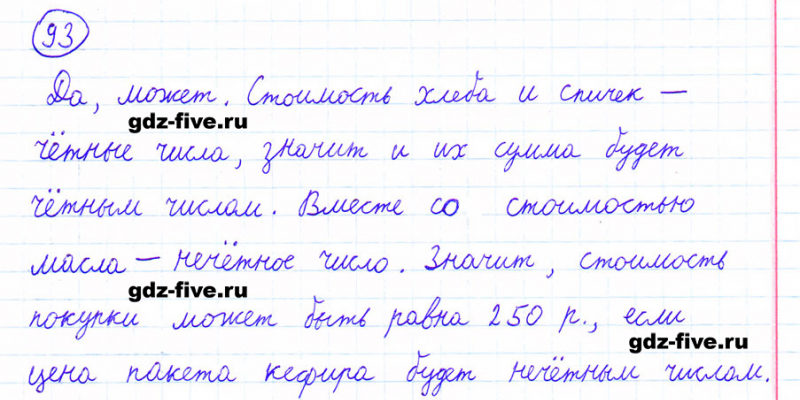 93
Да, может. Стоимость хлеба и спичек —
gdz-five.ru
чётные числа, значит и их сумма будет
чётным числом. Вместе со стоимостью
масла — нечётное число. Значит, стоимость
gdz-five.ru
покупки может быть равна 250 р., если
gdz-five.ru
цена пакета кефира будет нечётным числом.